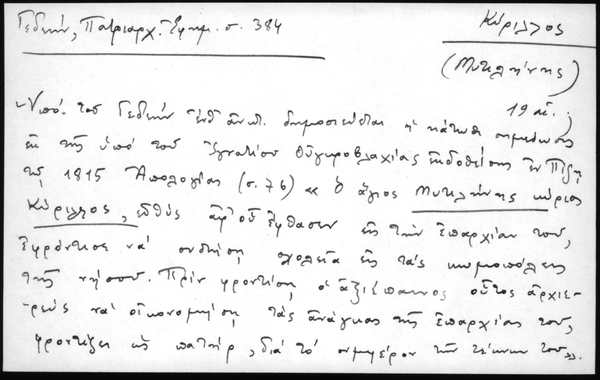 Γεδεών, Πατριαρχ. Ἐφημ. σ. 384
Κύριλλος
(Μυτιλήνης)
19 αἰ.
Ὑπό τοῦ Γεδεών ἐνθ' ἀνωτ. δημοσιεύεται ἡ κάτωθι σημείωσις
ἐκ τῆς ὑπό τοῦ Ἰγνατίου Οὑγγροβλαχίας ἐκδοθείσης ἐν Πίζῃ
τῷ 1815 Ἀπολογίας (σ. 76) « Ὁ ἅγιος Μυτιλήνης κύριος
Κύριλλος, εὐθύς ἀφ' οὗ ἔφθασεν εἰς τήν ἐπαρχίαν του,
ἐφρόντισε νά συστήσῃ σχολεῖα εἰς τάς κωμοπόλεις
τῆς νήσου. Πρίν φροντίσῃ ὁ ἀξιέπαινος οὗτος ἀρχιε-
ρεύς νά οἰκονομήσῃ τάς ἀνάγκας τῆς ἐπαρχίας του,
φροντίζει ὡς πατήρ, διά τό συμφέρον τῶν τέκνων του».